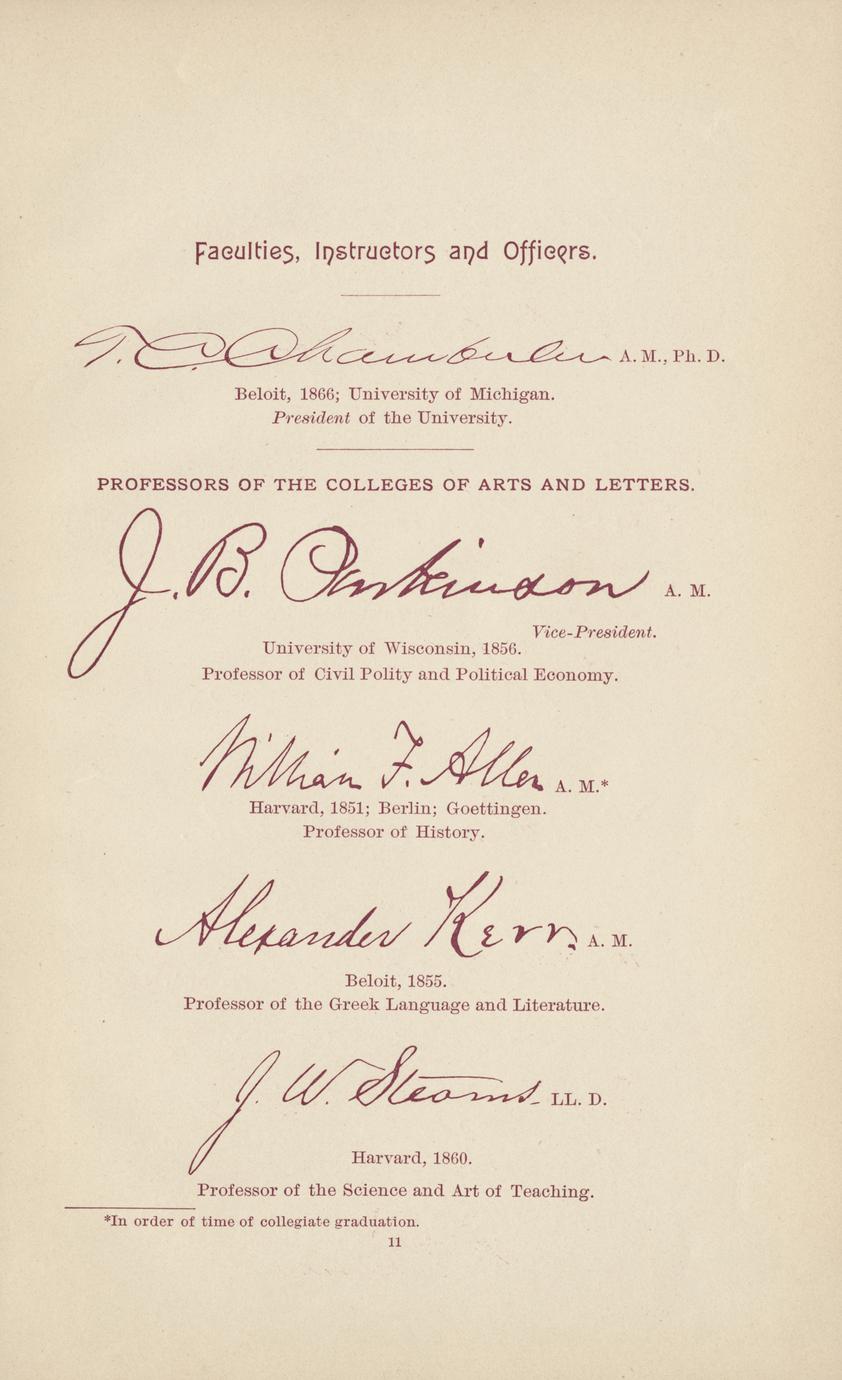 Faculties, Instructors and Officers.
T. C. Chamberlin A. M., Ph. D.
Beloit, 1866; University of Michigan.
President of the University.
PROFESSORS OF THE COLLEGES OF ARTS AND LETTERS.
J. B. Parkinson A. M.
Vice-President.
University of Wisconsin, 1856.
Professor of Civil Polity and Political Economy.
William F. Allen A. M.*
Harvard, 1851; Berlin; Goettingen.
Professor of History.
Alexander Kerr, A. M.
Beloit, 1855.
Professor of the Greek Language and Literature.
J. W. Stearns LL. D.
Harvard, 1860.
Professor of the Science and Art of Teaching.
*In order of time of collegiate graduation.
11